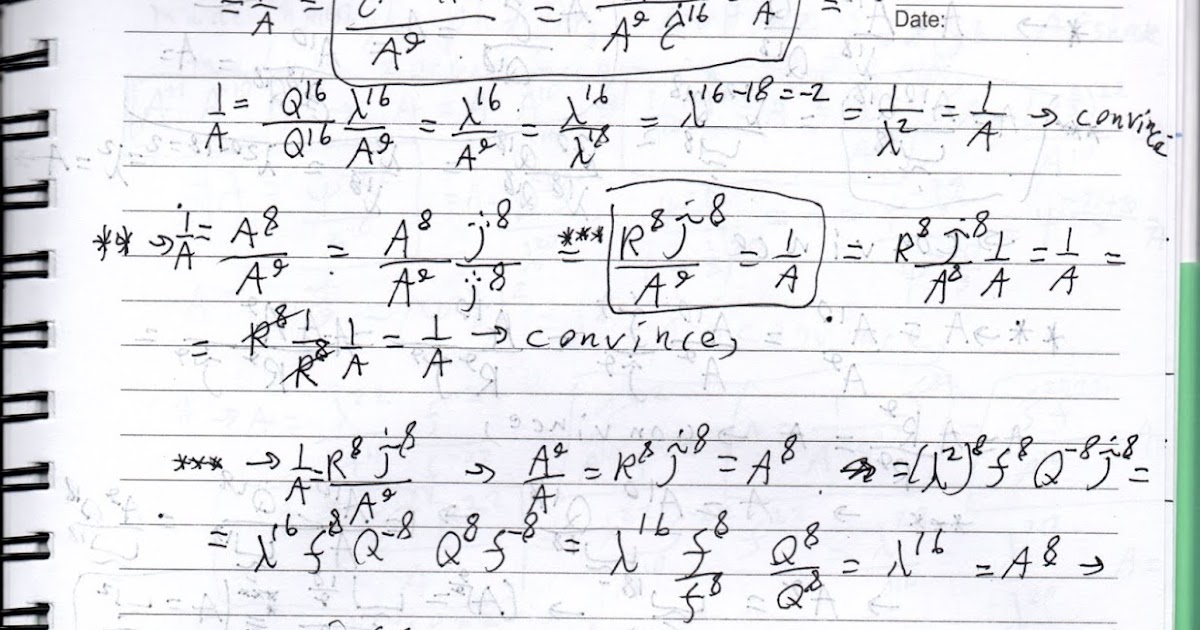 Date:
1/A = Q^16/Q^16 λ^16/A^9 = λ^16/A^9 = λ^16/λ^18 = λ^16-18=-2 = 1/λ^2 = 1/A → convince
** → 1/A = A^8/A^9 = A^8/A^9 j^8/j^8 = *** R^8 j^8/A^9 = 1/A = R^8 j^8/A^8 1/A = 1/A =
= R^8/R^8 1/A = 1/A → convince,
*** → 1/A = R^8 j^8/A^9 → A^9/A = R^8 j^8 = A^8 = (λ^2)^8 f^8 Q^-8 j^8 =
= λ^16 f^8 Q^-8 Q^8 f^-8 = λ^16 f^8/f^8 Q^8/Q^8 = λ^16 = A^8 →